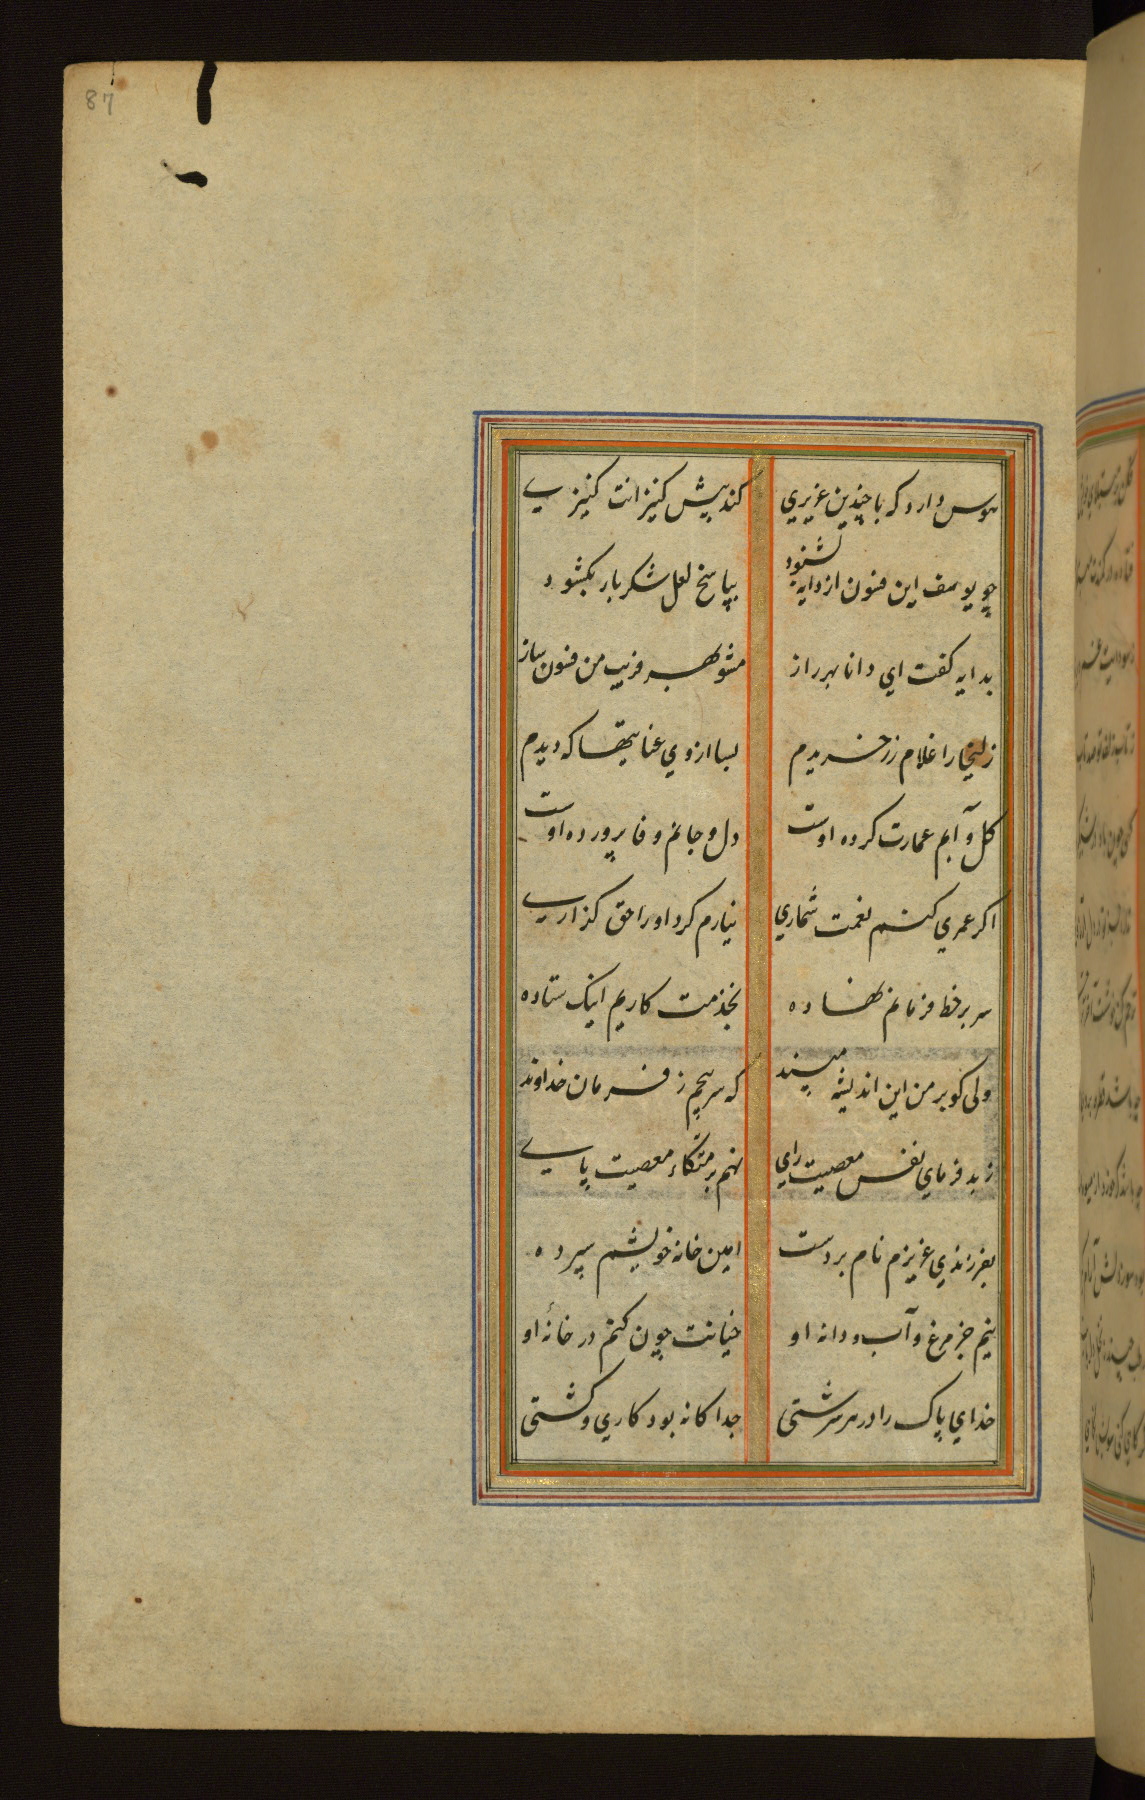 87
هوس دارد که با چندین عزیزي کند پیش کنیزانت کنیزیے
چو یوسف این فنون از دایه بشنود بپاسخ لعل شکربار بکشود
بدایه کفت اي دانا بهر راز مشو بهر فریب من فنون ساز
زلیخا را غلام زر خریدم بسا از وي عنایتها که دیدم
کل و آبم عمارت کرده اوست دل و جانم وفا پرورده اوست
اکر عمري کنم نعمت شماري نیارم کرد او را حق کذاریے
سر بر خط فرمانم نهاده بخدمت کاریم اینک ستاده
ولی کو بر من این اندیشه مپسند که سر پیچم ز فرمان خداوند
ز بد فرماي نفس معصیت راي نهم بر متکاء معصیت پایے
بفرزندي عزیزم نام بردست امین خانه خویشم سپرده
نیم جز مرغ و آب و دانه او خیانت چون کنم در خانهٔ او
خداي پاک را در هر سرشتی جدا کانه بود کاري و کشتی